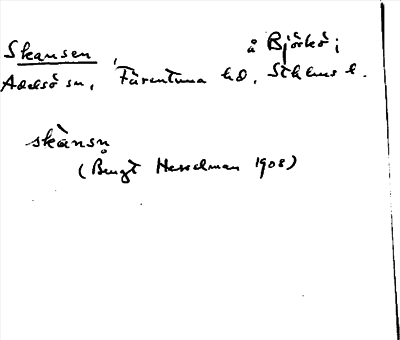 Skansen, å Björkö i
Adelsö sn, Färentuna hd, Sthlms l.
skànsn̥
(Bengt Hesselman 1908)